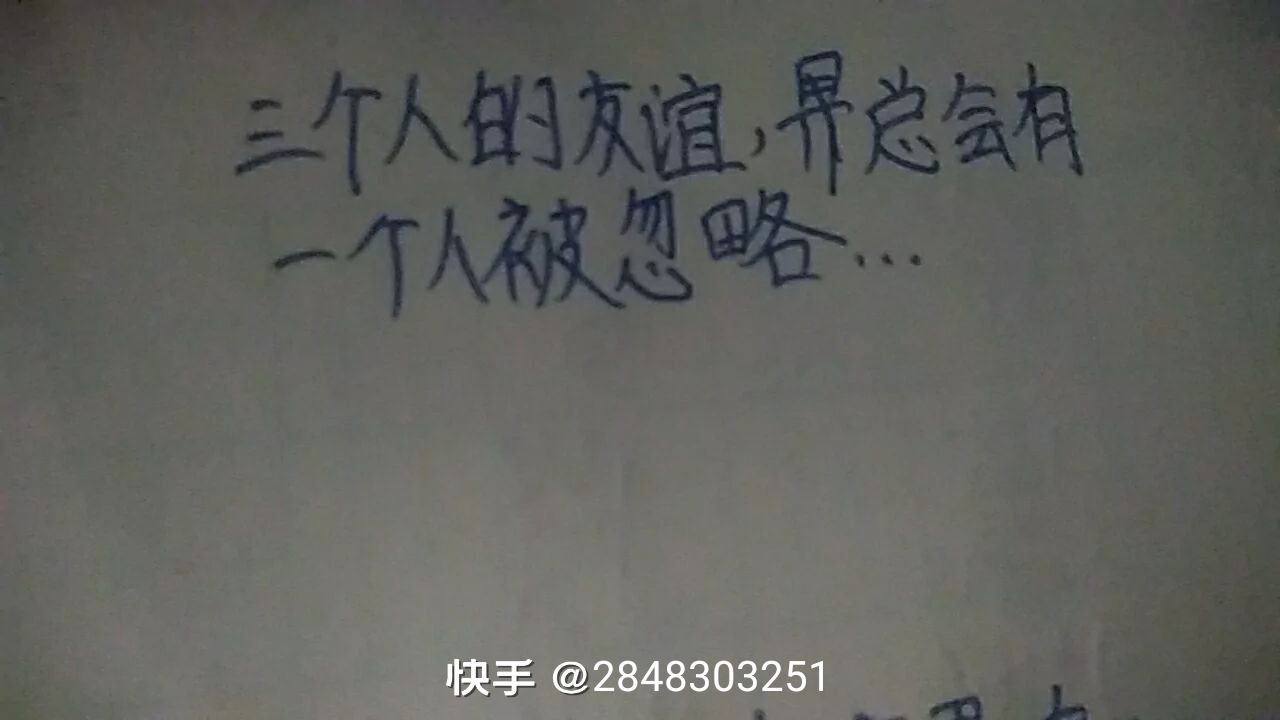 三个人的友谊,畀总会有
一个人被忽略...
快手 @2848303251